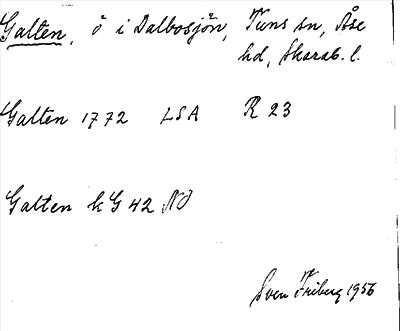 Galten, ö i Dalbosjön, Tuns sn, Åse
hd, Skarab. l.
Galten 1772 LSA R 23
Galten kG 42 NÖ
Sven Friberg 1956